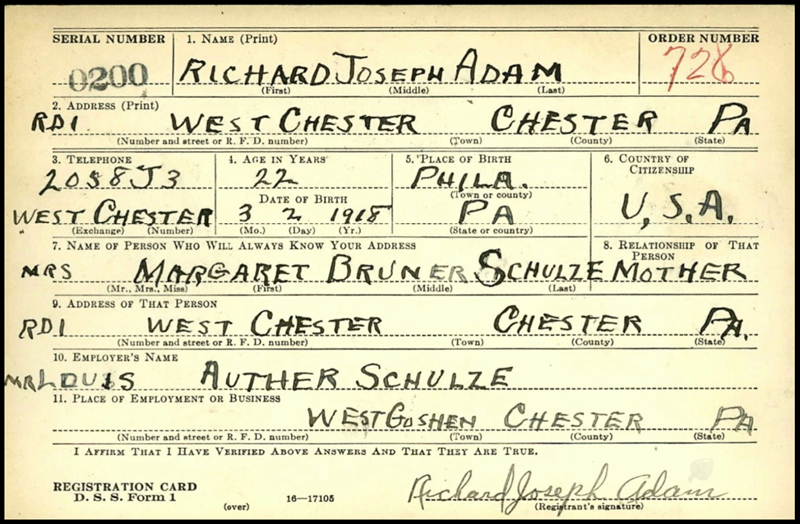 SERIAL NUMBER 1. NAME (Print) ORDER NUMBER
0200 RICHARD JOSEPH ADAM 728
(First) (Middle) (Last)
2. ADDRESS (Print)
RD1 WEST CHESTER CHESTER PA
(Number and street or R. F. D. number) (Town) (County) (State)
3. TELEPHONE 4. AGE IN YEARS 5. PLACE OF BIRTH 6. COUNTRY OF CITIZENSHIP
2058J3 22 PHILA.
DATE OF BIRTH (Town or county)
WEST CHESTER 3 2 1918 PA U.S.A.
(Exchange) (Number) (Mo.) (Day) (Yr.) (State or country)
7. NAME OF PERSON WHO WILL ALWAYS KNOW YOUR ADDRESS 8. RELATIONSHIP OF THAT PERSON
MRS MARGARET BRUNER SCHULZE MOTHER
(Mr., Mrs., Miss) (First) (Middle) (Last)
9. ADDRESS OF THAT PERSON
RD1 WEST CHESTER CHESTER PA.
(Number and street or R. F. D. number) (Town) (County) (State)
10. EMPLOYER'S NAME
MR LOUIS AUTHER SCHULZE
11. PLACE OF EMPLOYMENT OR BUSINESS
WEST GOSHEN CHESTER PA
(Number and street or R. F. D. number) (Town) (County) (State)
I AFFIRM THAT I HAVE VERIFIED ABOVE ANSWERS AND THAT THEY ARE TRUE.
REGISTRATION CARD Richard Joseph Adam
D. S. S. Form 1 (over) 16—17105 (Registrant's signature)